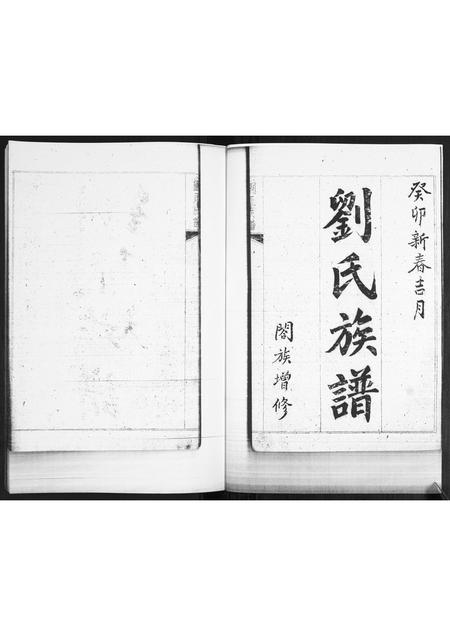 癸卯新春吉月
劉氏族譜
閤族增修